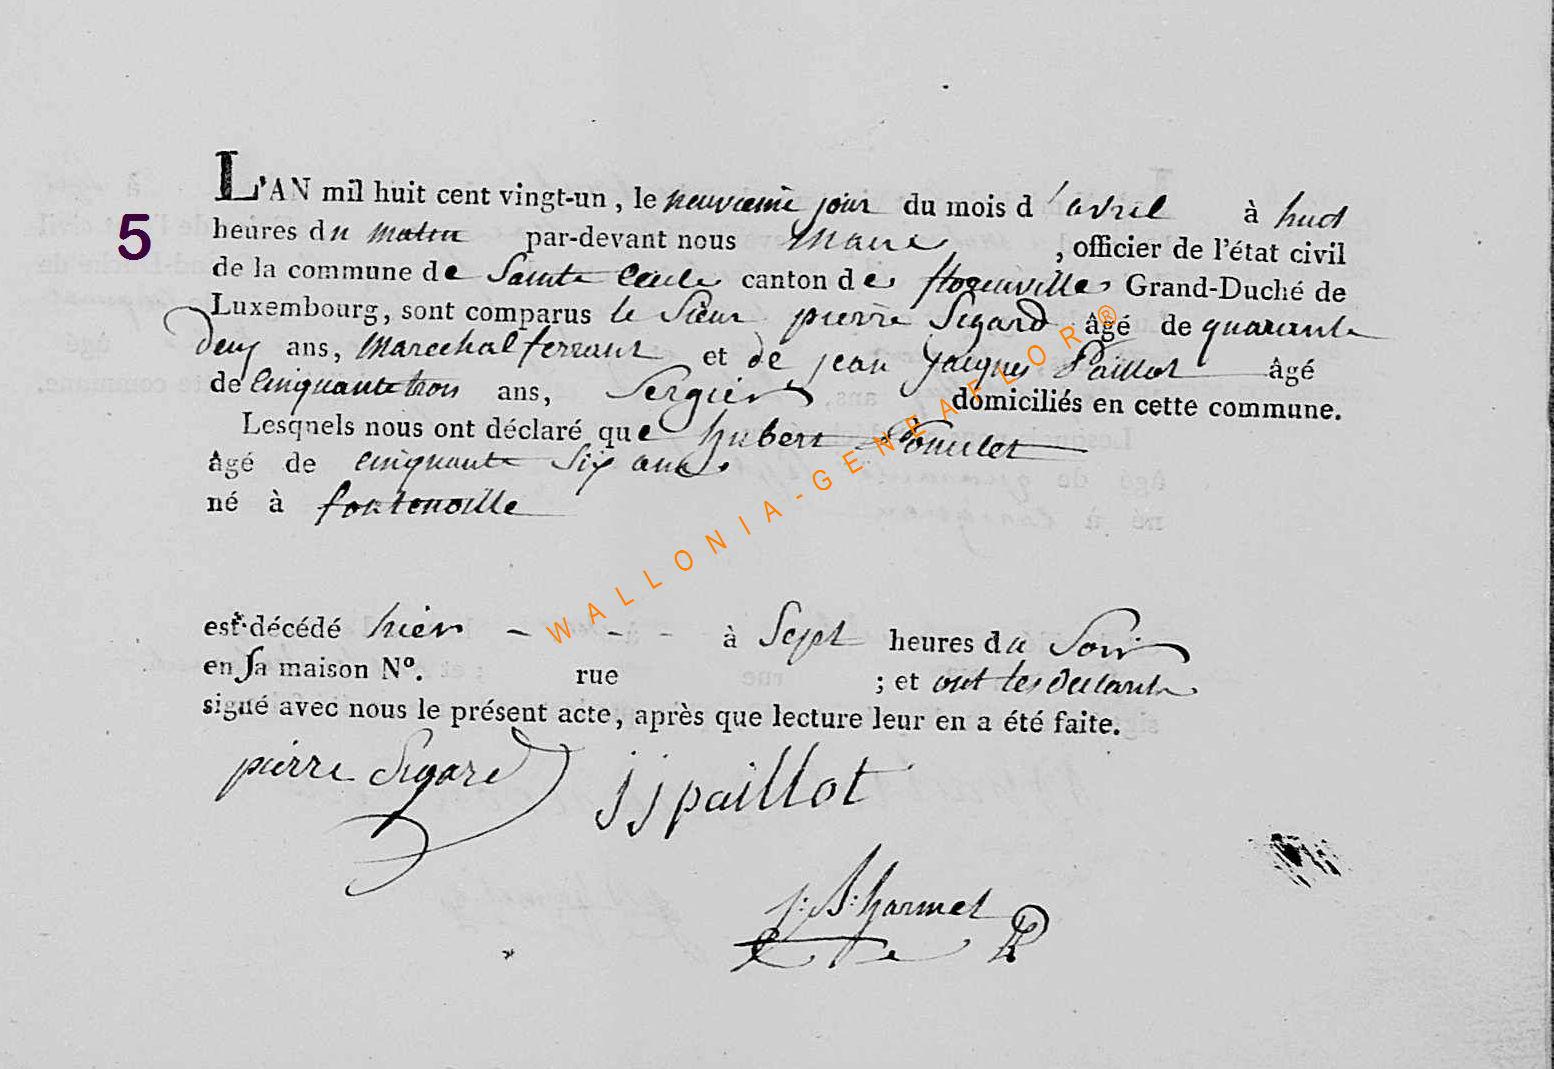 5
L'AN mil huit cent vingt-un, le neuvieme jour du mois d'avril à huit
heures du matin par-devant nous Maire, officier de l'état civil
de la commune de Sainte Cecile canton de florenville Grand-Duché de
Luxembourg, sont comparus le Sieur pierre Sigard âgé de quarante
deux ans, Marechal ferrant et de jean jacques Paillot âgé
de cinquante trois ans, Sergier domiciliés en cette commune.
Lesquels nous ont déclaré que hubert
âgé de cinquante six ans.
né à fontenoille
est décédé hier - - - à Sept heures du Soir
en Sa maison N°. rue ; et ont les déclarants
signé avec nous le présent acte, après que lecture leur en a été faite.
pierre Sigard jjpaillot
j:B:harmel
WALLONIA-GENEAFLOR®